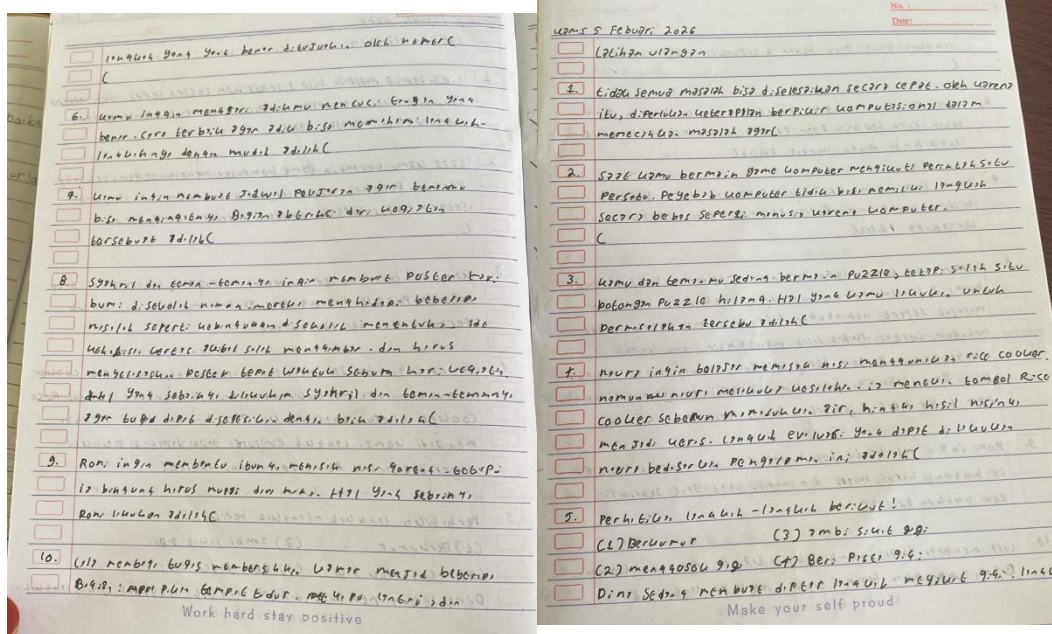 langkah yang yang benar ditunjukkan oleh nomer(
(
6. kamu ingin mengajari adikmu mencuci tangan yang
benar. Cara terbaik agar adik bisa memahami langkah-
langkahnya dengan mudah adalah(
7. kamu ingin membuat Jadwal Pelajaran agar temanmu
bisa mengingatnya. Bagian abstrak dari kegiatan
tersebut adalah(
8 Syahril dan teman-temannya ingin membuat Poster
bumi disekolah namun mereka menghadapi beberapa
masalah seperti kebingungan menentukan ide
kehabisan kertas salah menggambar. dan harus
menyelesaikan poster tepat waktu sebelum hari kegiatan
yang sebaiknya dilakukan Syahril dan teman-temannya
agar tugas dapat diselesaikan dengan baik adalah(
9. Roni ingin membantu ibunya memasak nasi goreng-tetapi
ia bingung harus mulai dari mana. Hal yang sebaiknya
Roni lakukan adalah(
10. Lili membagi tugas membersihkan kamar menjadi beberapa
Bagian: merapikan tempat tidur. menyapu lantai, dan
Work hard stay positive
No. :
Date:
kamis 5 Febuari 2026
Latihan ulangan
1. tidak semua masalah bisa diselesaikan secara cepat. oleh karena
itu, diperlukan keterapilan berpikir komputasional dalam
memecahkan masalah agar(
2. saat kamu bermain game komputer mengikuti Perintah satu
Persatu. Peyebab komputer tidak bisa memiliki langkah
secara bebas seperti manusia karena komputer.
(
3. kamu dan temanmu sedang bermain puzzle, tetapi salah satu
potongan Puzzle hilang. Hal yang kamu lakukan untuk
permasalahan tersebu adalah(
4. noura ingin belajar memasak nasi menggunakan rice cooker.
namun noura melakukan kesalahan. ia menekan tombol Rice
cooker sebelum memasukkan air, hingga hasil nasinya
menjadi keras. langkah evaluasi yang dapat dilakukan
noura bedasarkan pengalaman ini adalah(
5. Perhatikan langkah-langkah berikut!
(1) Berkumur (3) ambil sikat gigi
(2) menggosok gigi (4) Beri Pasta gigi
Dina Sedang membuat daftar langkah meyikat gigi.
Make your self proud